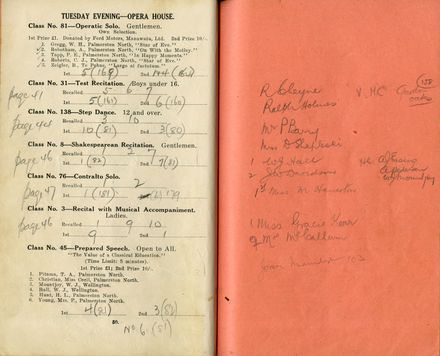 TUESDAY EVENING—OPERA HOUSE.
Class No. 81—Operatic Solo. Gentlemen.
Own Selection.
1st Prize £1. Donated by Ford Motors, Manawatu, Ltd. 2nd Prize 10/-.
1. Gregg, W. H., Palmerston North, "Star of Eve."
2. Robotham, A., Palmerston North, "On With the Motley."
3. Tapp, F. E., Palmerston North, "In Happy Moments."
4. Roberts, C. J., Palmerston North, "Star of Eve."
5. Zeigler, B., Te Puhue, "Largo al factotum."
1st 5 (168) 2nd
Class No. 31—Test Recitation. Boys under 16.
Page 41 Recalled 5 6 7
1st 5 (161) 2nd 6 (160)
Class No. 138—Step Dance. 12 and over.
Page 44 Recalled 3 10
1st 10 (81) 2nd 3 (80)
Class No. 8—Shakespearean Recitation. Gentlemen.
Page 46 Recalled 1 2 7
1st (82) 2nd 7 (81)
Class No. 76—Contralto Solo.
Page 47 Recalled 2
1st 1 (181) 2nd 179
Class No. 3—Recital with Musical Accompaniment.
Ladies.
Page 46 Recalled 1 9 10
1st 9 2nd 1
Class No. 45—Prepared Speech. Open to All.
"The Value of a Classical Education."
(Time Limit: 5 minutes).
1st Prize £1; 2nd Prize 10/-.
1. Pitama, T. A., Palmerston North.
2. Christian, Miss Cecil, Palmerston North.
3. Mountjoy, W. J., Wellington.
4. Hall, W. J., Wellington.
5. Hunt, H. L., Palmerston North.
6. Young, Mrs. P., Palmerston North.
1st 4 (81) 2nd 3 (80)
50.
No. 6 (81)
R Cheyne V. HC
Ralph Holmes
Mr P Barry
Miss D
1 W J Hall
2 J Davidson
1st Miss M
1 Miss Gracie Kerr
2 Mrs McCallum
103